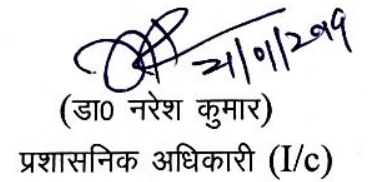 21/01/2019
(डा0 नरेश कुमार)
प्रशासनिक अधिकारी (I/c)